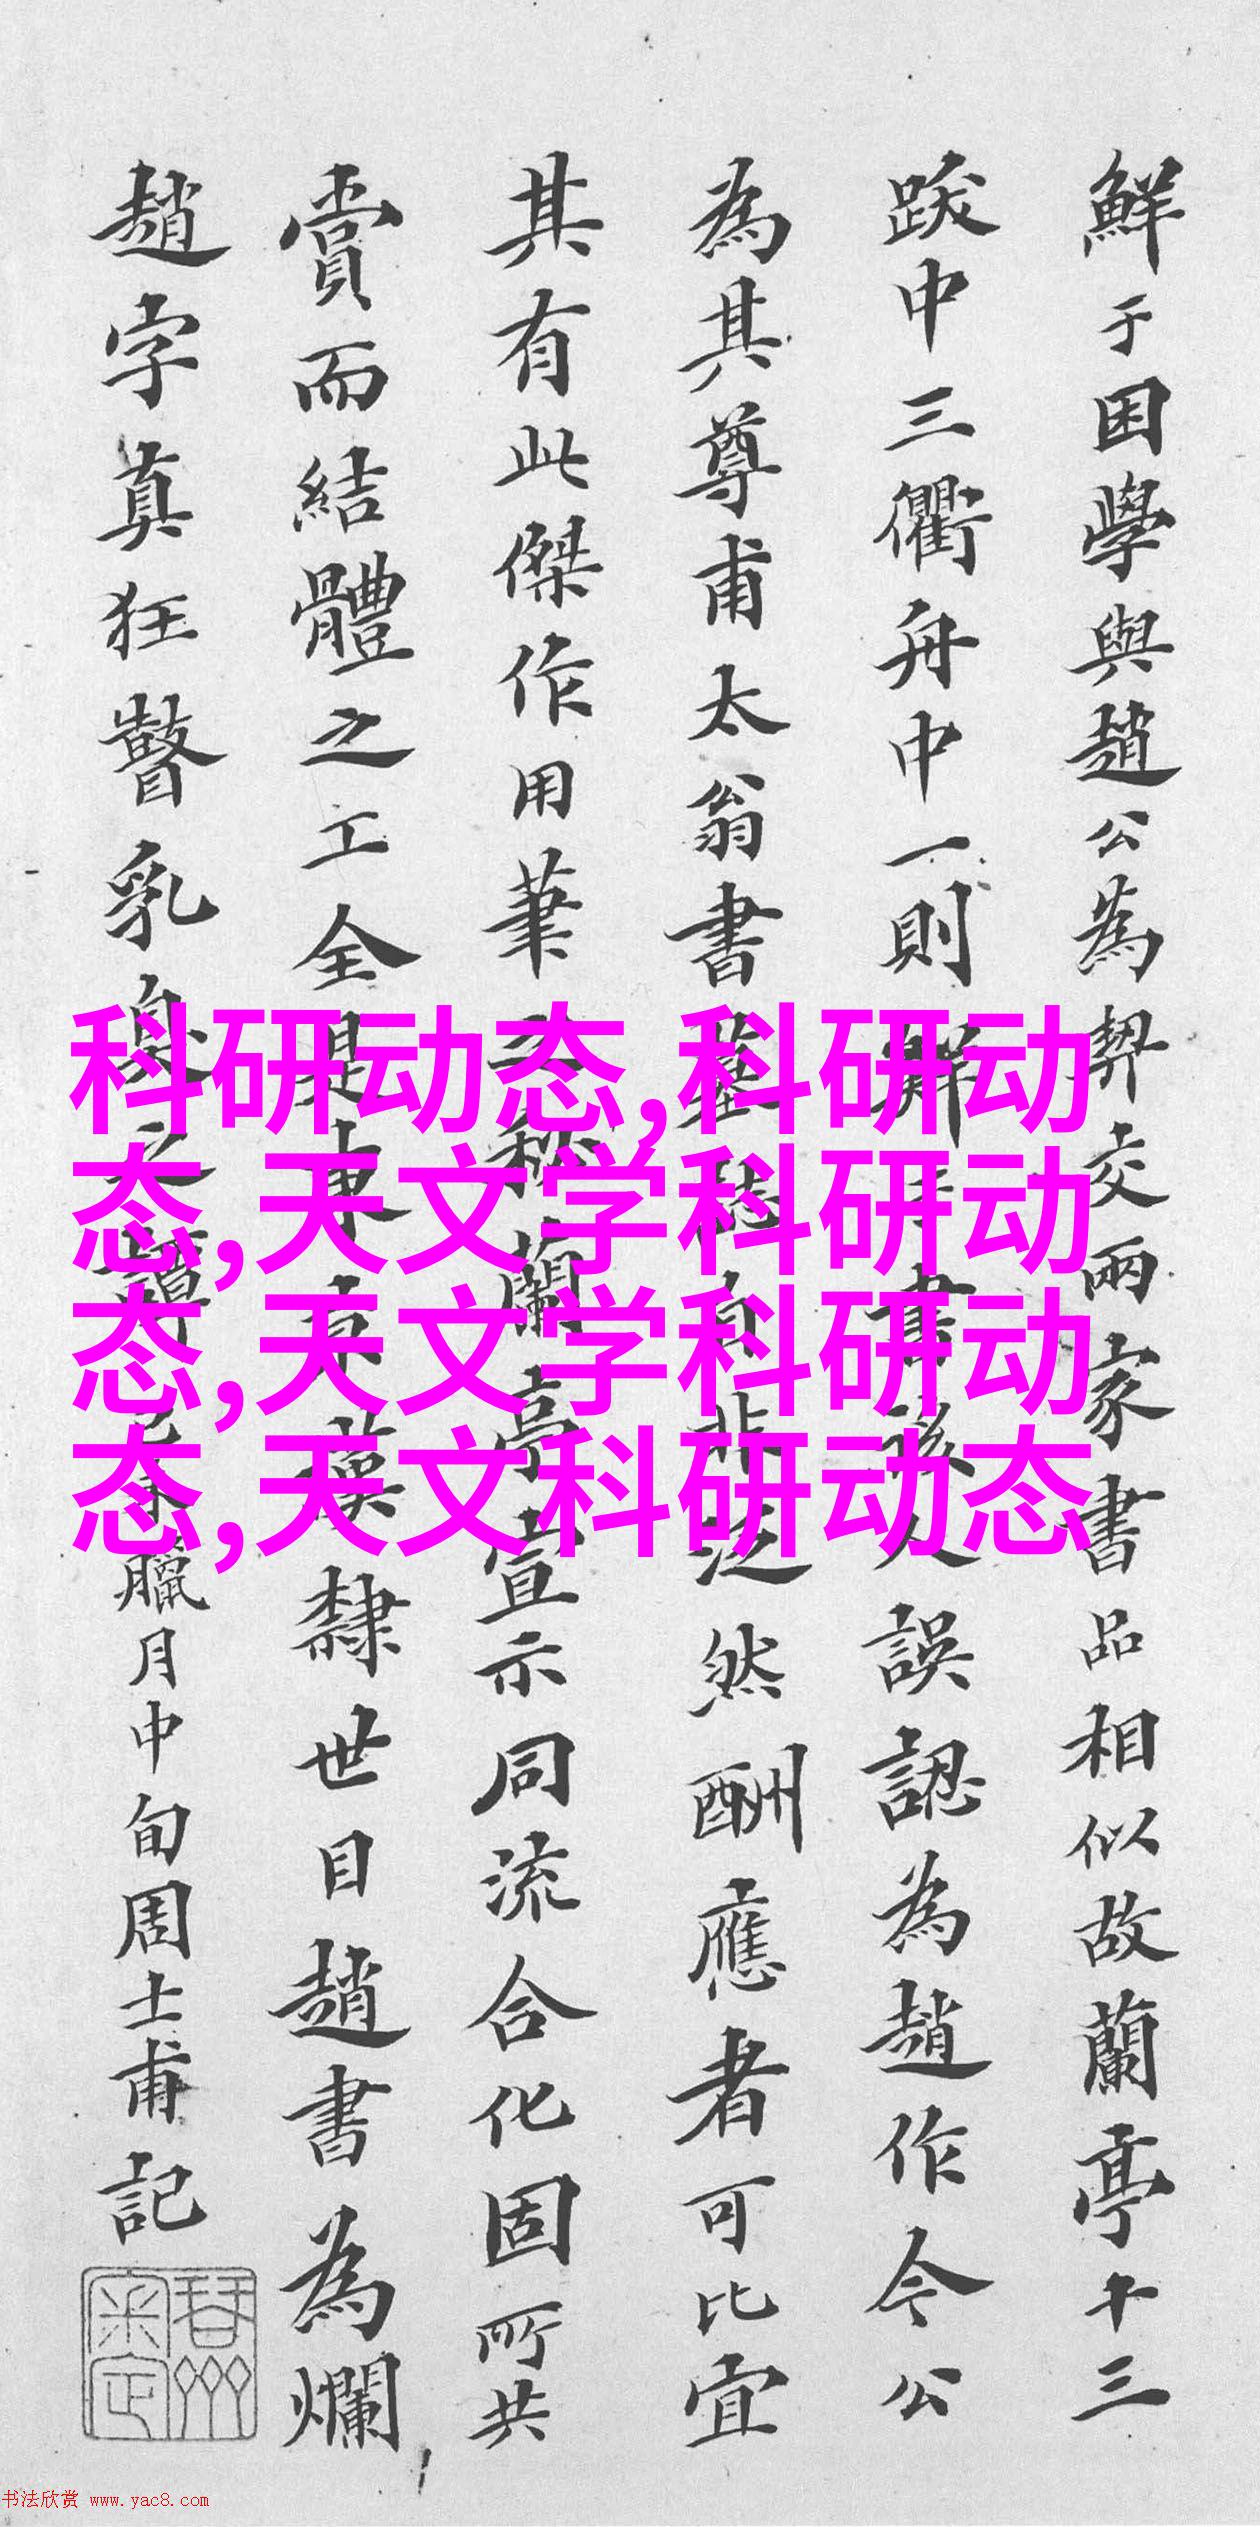 鮮于困學與趙公為契交兩家書品相似故蘭亭十三
跋中三衢舟中一則鮮于書後人誤認為趙作今公
為其尊甫太翁書墓誌自非泛然酬應者可比宜
其有此傑作用筆之秘蘭亭宣示同流合化固所共
賞而結體之工全是東京漢隸世目趙書為爛
趙字真狂瞽乳臭之譚
臘月中旬周士甫記
科研动态,科研动
态,天文学科研动
态,天文学科研动
态,天文科研动态
书法欣赏 www.yac8.com